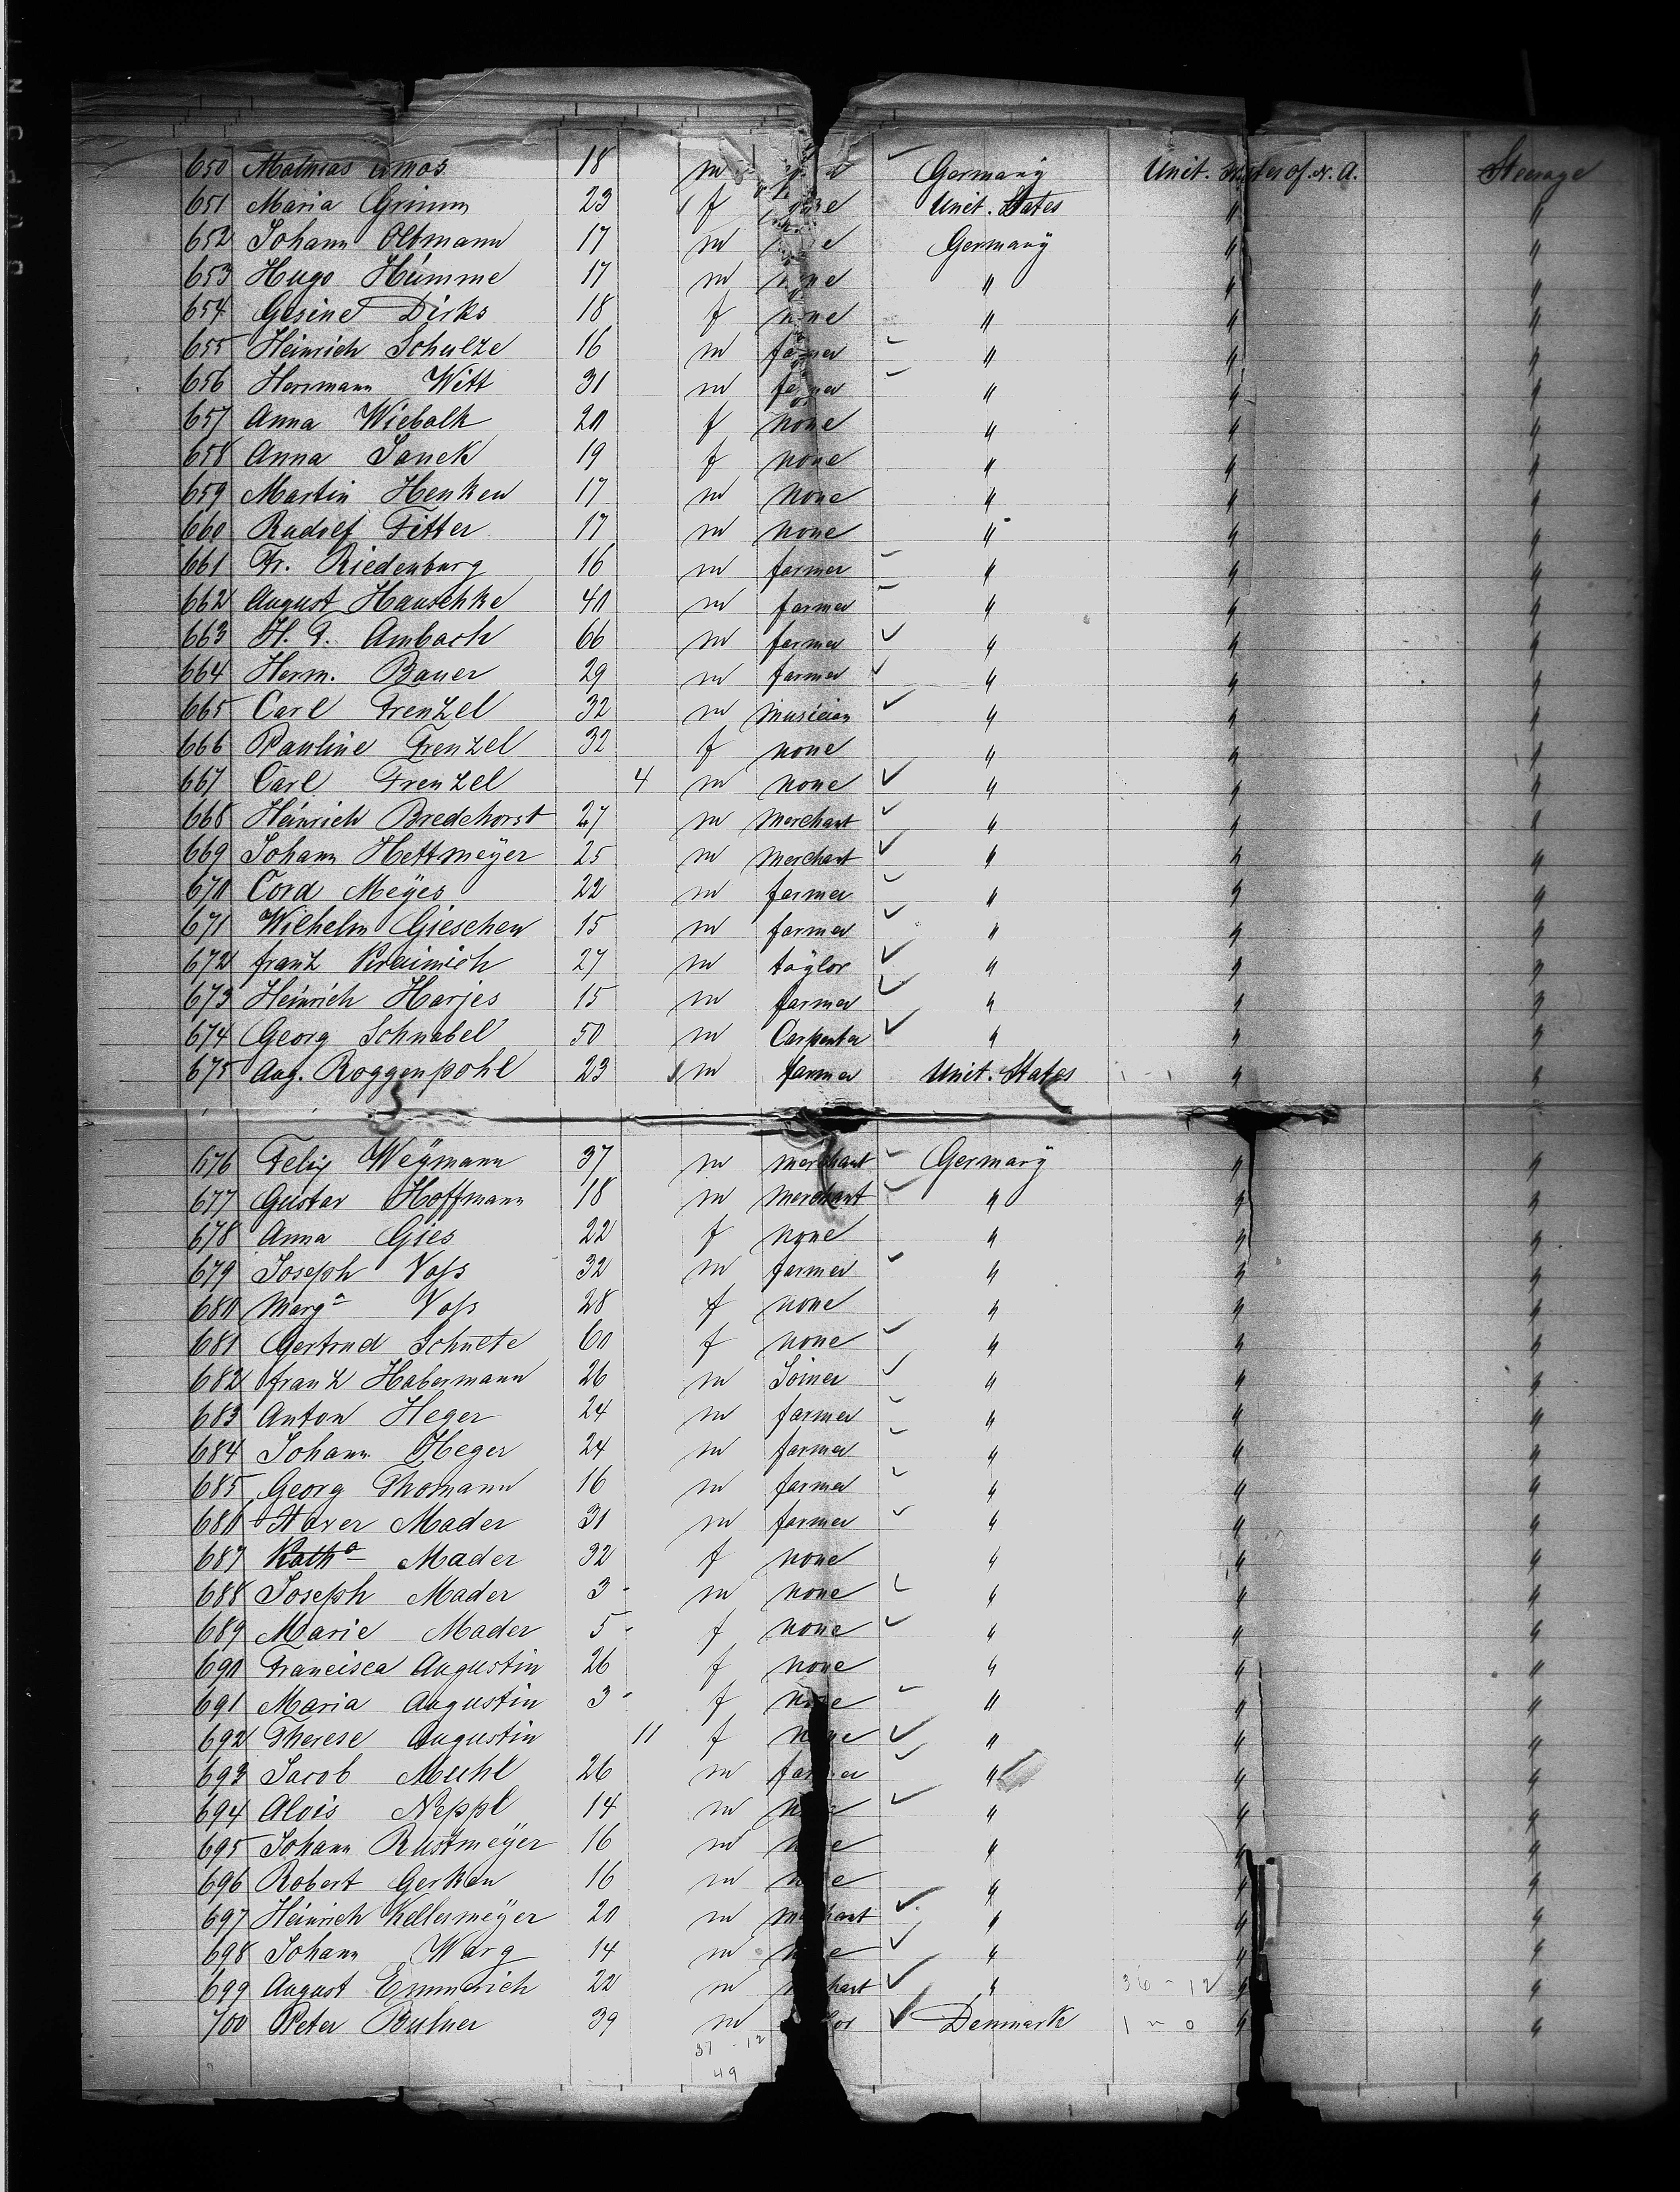 650 Mathias Amos 18 m Germany Unit. States of N. A. Steerage
651 Maria Grimm 23 f none Unit. States " "
652 Johann Oltmann 17 m none Germany " "
653 Hugo Hümme 17 m none " " "
654 Gesine Dirks 18 f none " " "
655 Heinrich Schulze 16 m farmer " " "
656 Herrmann Witt 31 m farmer " " "
657 Anna Wiebalk 20 f none " " "
658 Anna Janek 19 f none " " "
659 Martin Henken 17 m none " " "
660 Rudolf Fitter 17 m none " " "
661 Fr. Riedenburg 16 m farmer " " "
662 August Hauschke 40 m farmer " " "
663 H. F. Ambach 66 m farmer " " "
664 Herm. Bauer 29 m farmer " " "
665 Carl Frenzel 32 m musician " " "
666 Pauline Frenzel 32 f none " " "
667 Carl Frenzel 4 m none " " "
668 Heinrich Bredehorst 27 m merchant " " "
669 Johann Hettmeÿer 25 m merchant " " "
670 Cord Meÿes 22 m farmer " " "
671 Wilhelm Gieschen 15 m farmer " " "
672 franz 27 m taylor " " "
673 Heinrich Harjes 15 m farmer " " "
674 Georg Schnabel 50 m Carpenter " " "
675 Aug. Roggenpohl 23 m farmer Unit. States " "
676 Felix Weÿmann 37 m merchant Germany " "
677 Gustav Hoffmann 18 m merchant " " "
678 Anna Gies 22 f none " " "
679 Joseph Voss 32 m farmer " " "
680 Marga Voss 28 f none " " "
681 Gertrud 60 f none " " "
682 franz Habermann 26 m Joiner " " "
683 Anton Heger 24 m farmer " " "
684 Johann Heger 24 m farmer " " "
685 Georg Thomann 16 m farmer " " "
686 Xaver Mader 31 m farmer " " "
687 Katha Mader 32 f none " " "
688 Joseph Mader 3 - m none " " "
689 Marie Mader 5 - f none " " "
690 Francisca Augustin 26 f none " " "
691 Maria Augustin 3 - f none " " "
692 Therese Augustin 11 f none " " "
693 Jacob Muhl 26 m farmer " " "
694 Alois Neppl 14 m none " " "
695 Johann Rustmeÿer 16 m none " " "
696 Robert Gerken 16 m none " " "
697 Heinrich Kellermeÿer 20 m merchant " " "
698 Johann Warg 14 m none " " "
699 August Emmerich 22 m merchant " 36 - 12 " "
700 Peter 39 m Denmark 1 - 0 " "
37 - 12
49